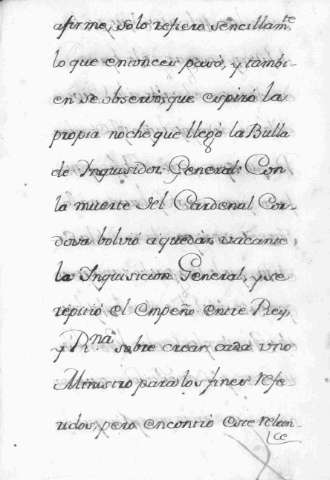 afirme, solo refiero sencillam.te
lo que entonces pasó, y tambi-
en se observó, que espiró la
propia noche que llegó la Bulla
de Inquisidor General: Con
la muerte del Cardenal Cor-
dova bolvió a quedar vacante,
la Inquisicion General, y se
repitió el empeño entre Rey,
y R.na sobre crear cada uno
Ministro para los fines refe
ridos, pero encontró este